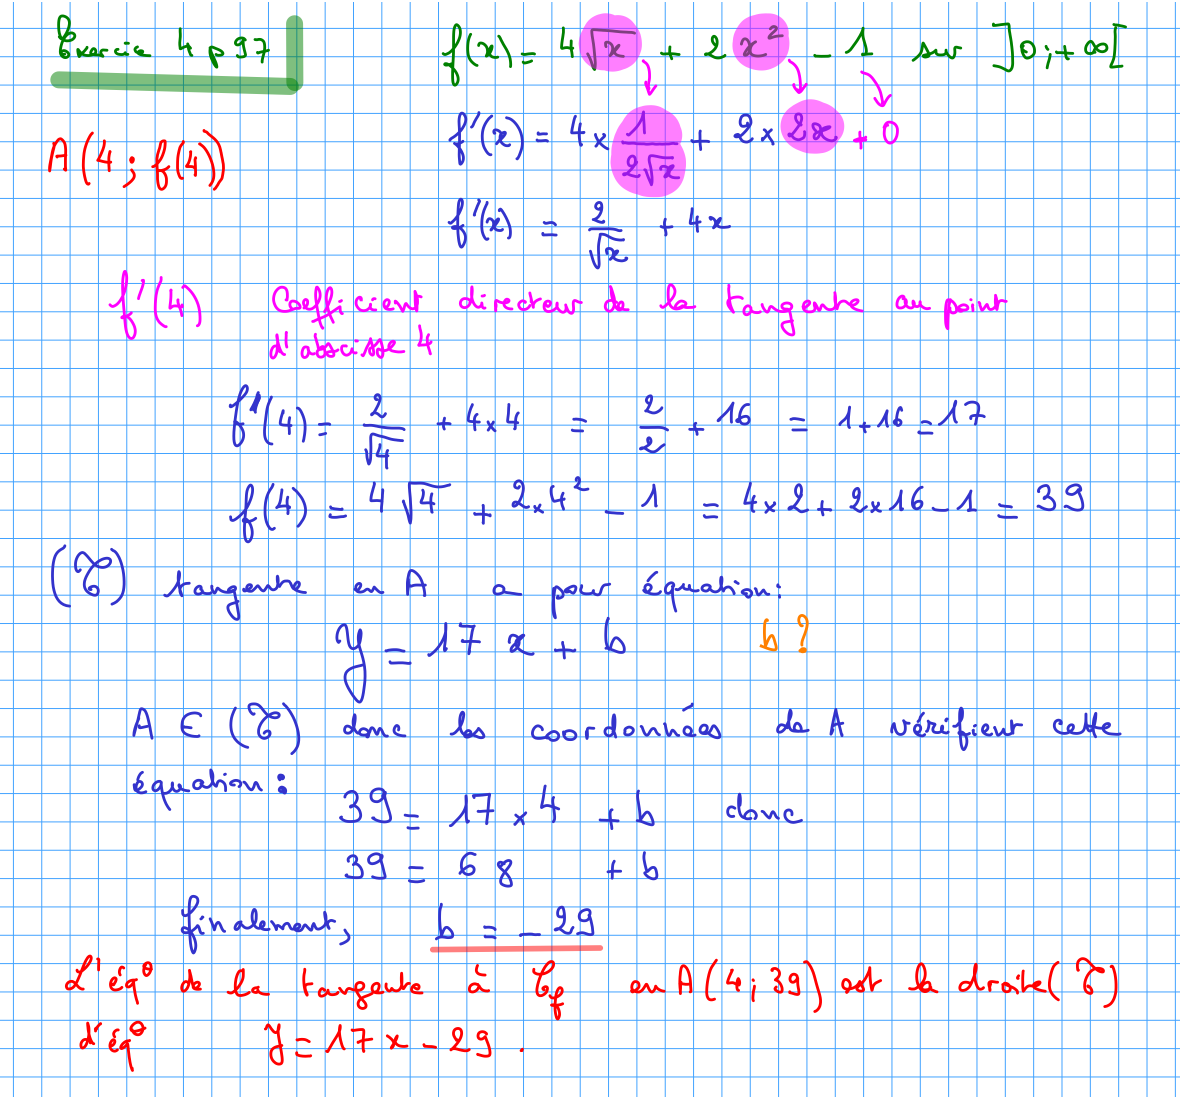 Exercice 4 p 97
f(x) = 4√x + 2x² - 1 sur ]0;+∞[
A(4 ; f(4))
f'(x) = 4 × 1/(2√x) + 2 × 2x + 0
f'(x) = 2/√x + 4x
f'(4) Coefficient directeur de la tangente au point
d'abscisse 4
f'(4) = 2/√4 + 4×4 = 2/2 + 16 = 1+16 = 17
f(4) = 4√4 + 2×4² - 1 = 4×2 + 2×16 - 1 = 39
(T) tangente en A a pour équation:
y = 17 x + b b ?
A ∈ (T) donc les coordonnées de A vérifient cette
équation:
39 = 17 × 4 + b donc
39 = 68 + b
finalement, b = - 29
L'éq° de la tangente à Cf en A(4;39) est la droite (T)
d'éq° y = 17x - 29.